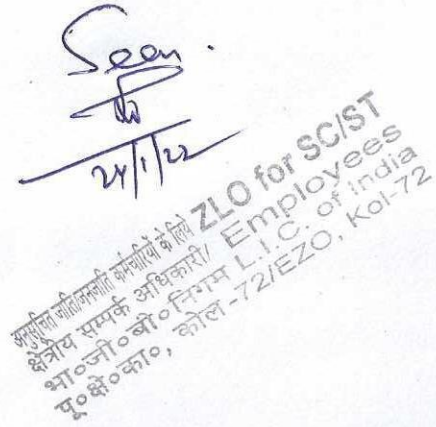 Seen.
24/1/22
अनुसूचित जाति/जनजाति कर्मचारियों के लिये ZLO for SC/ST
क्षेत्रीय सम्पर्क अधिकारी/ Employees
भा०जी०बी०निगम L.I.C. of India
पू०क्षे०का०, कोल-72/EZO, Kol-72